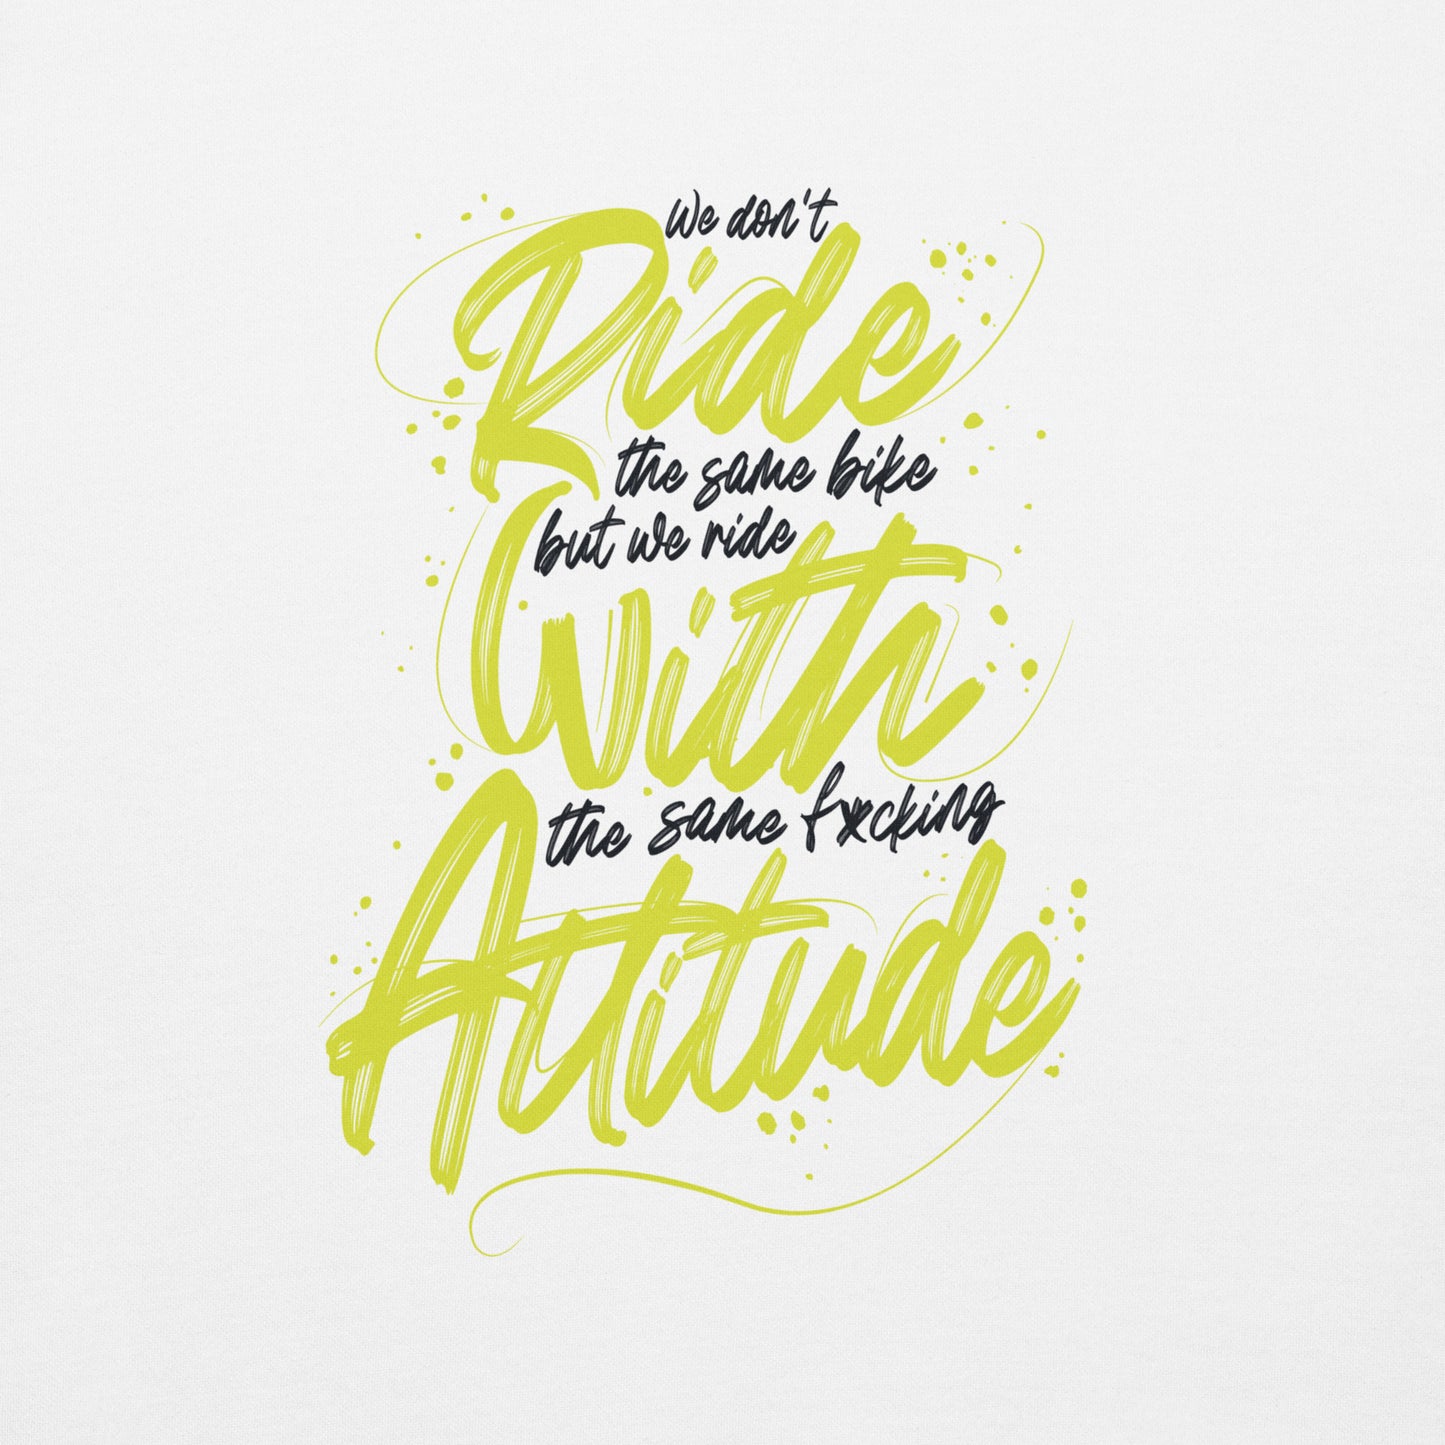 We don't
Ride
the same bike
but we ride
With
the same f*cking
Attitude